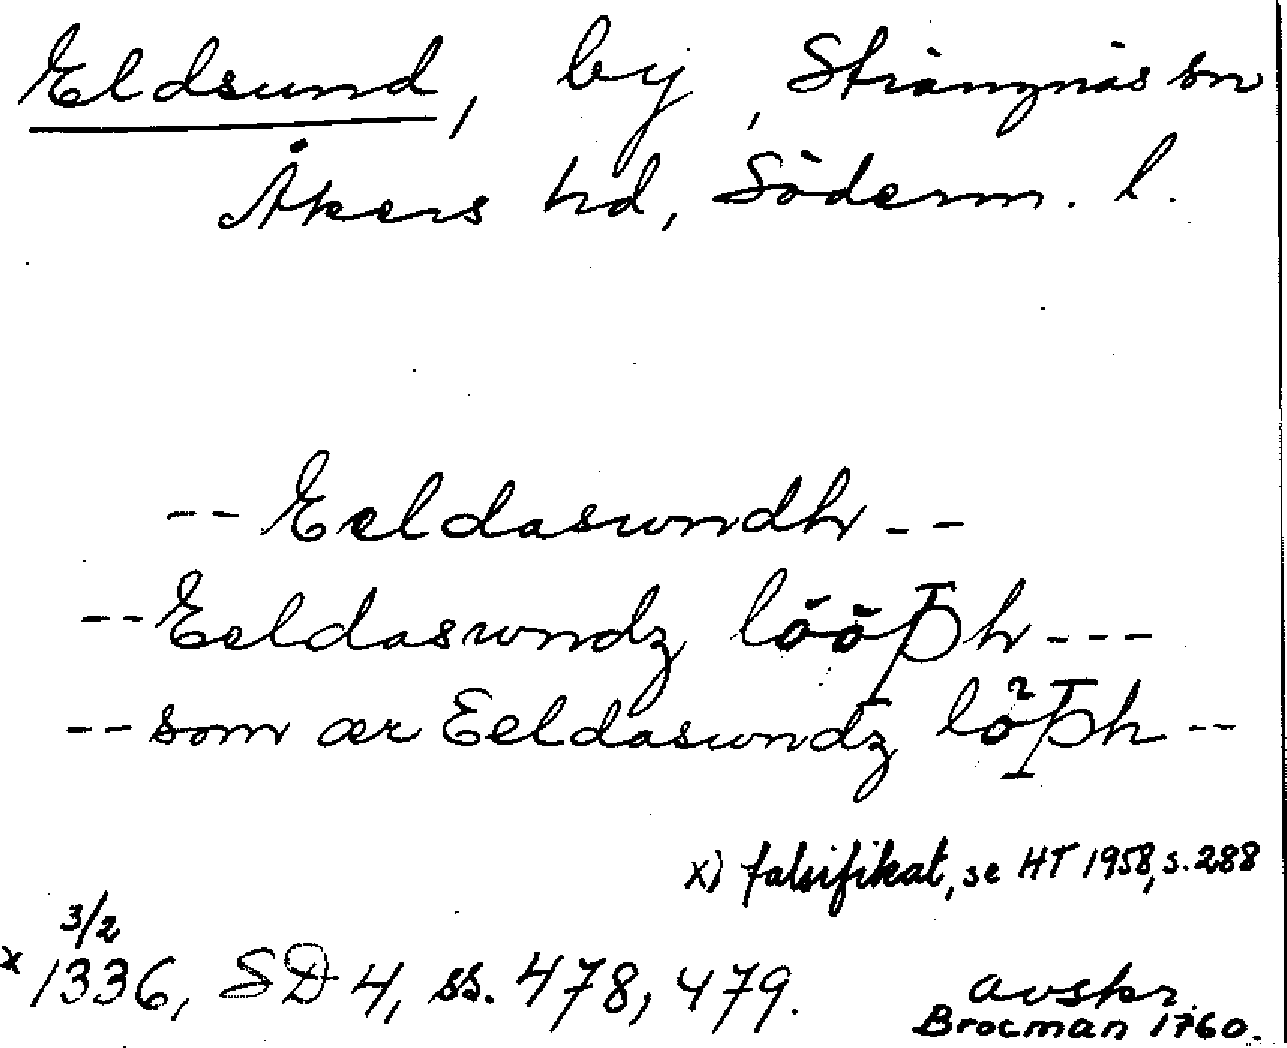 Eldsund, by, Strängnäs sn
Åkers hd, Söderm. l.
-- Eeldaswndh --
-- Eeldaswndz lööþh ---
-- som ær Eeldaswndz löþh --
x) falsifikat, se HT 1958, s. 288
3/2
x 1336, SD 4, ss. 478, 479.
avskr.
Brocman 1760.